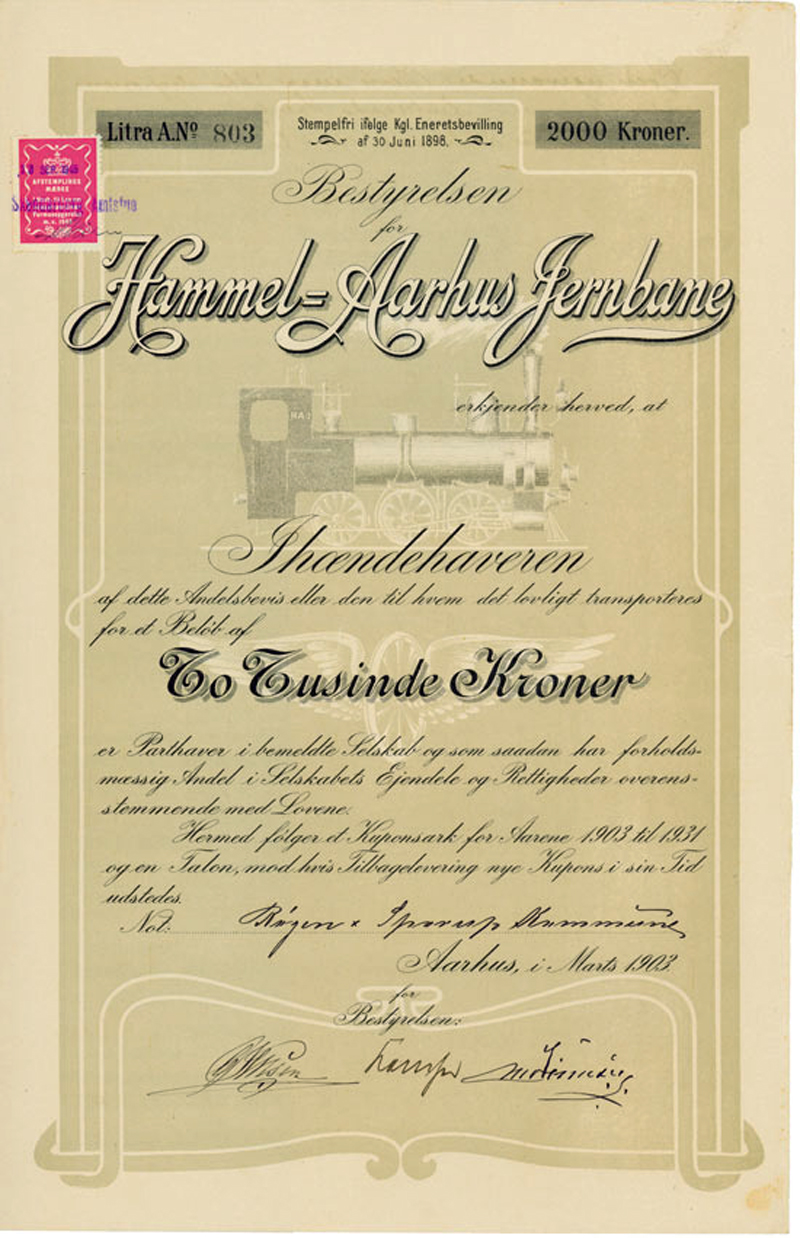 Litra A. Nº 803
Stempelfri ifølge Kgl. Eneretsbevilling
af 30 Juni 1898.
2000 Kroner.
AFSTEMPLINGS
MÆRKE
Bestyrelsen
for
Hammel=Aarhus Jernbane
erkjender herved, at
HAJ
Ihændehaveren
af dette Andelsbevis eller den til hvem det lovligt transporteres
for et Beløb af
To Tusinde Kroner
er Parthaver i bemeldte Selskab og som saadan har forholds-
mæssig Andel i Selskabets Ejendele og Rettigheder overens-
stemmende med Lovene.
Hermed følger et Kuponsark for Aarene 1903 til 1931
og en Talon, mod hvis Tilbagelevering nye Kupons i sin Tid
udstedes.
Not: Røgen & Sporup Kommune
Aarhus, i Marts 1903.
for
Bestyrelsen: